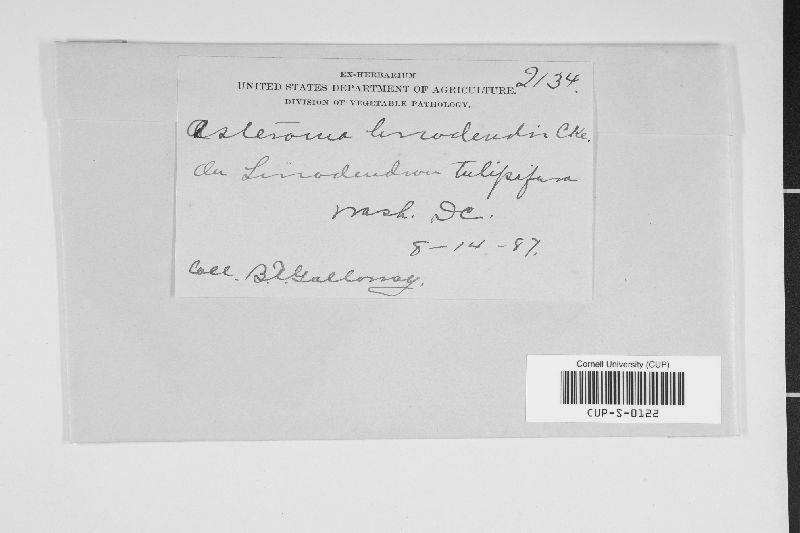 EX-HERBARIUM
UNITED STATES DEPARTMENT OF AGRICULTURE. 2134.
DIVISION OF VEGETABLE PATHOLOGY.
Asteroma liriodendri Cke.
On Liriodendron tulipifera
Wash. DC.
8-14-87.
Coll. B.T. Galloway.
Cornell University (CUP)
CUP-S-0122